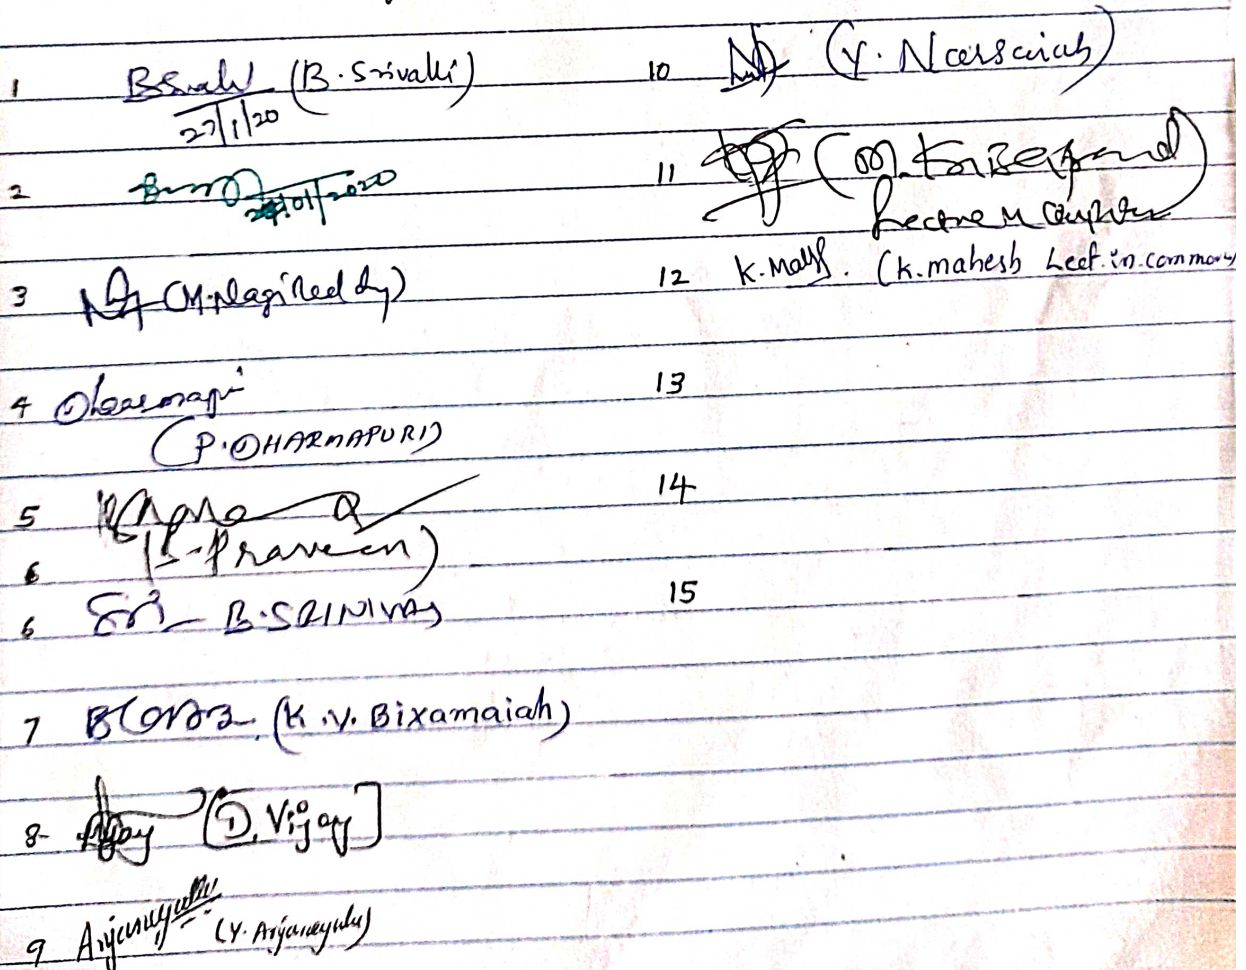 1 (B. Srivalli)
27/1/20
2 27/01/2020
3 (M. Nagi Reddy)
4 Dharmapuri
(P. DHARMAPURI)
5
6 Praveen)
6 B. SRINIVAS
7 (K. V. Bixamaiah)
8- Vijay [D. Vijay]
9 Anjaneyulu (Y. Anjaneyulu)
10 (Y. Narsaiah)
11
12 K. Mahesh. (K. mahesh Lect. in. commerce
13
14
15